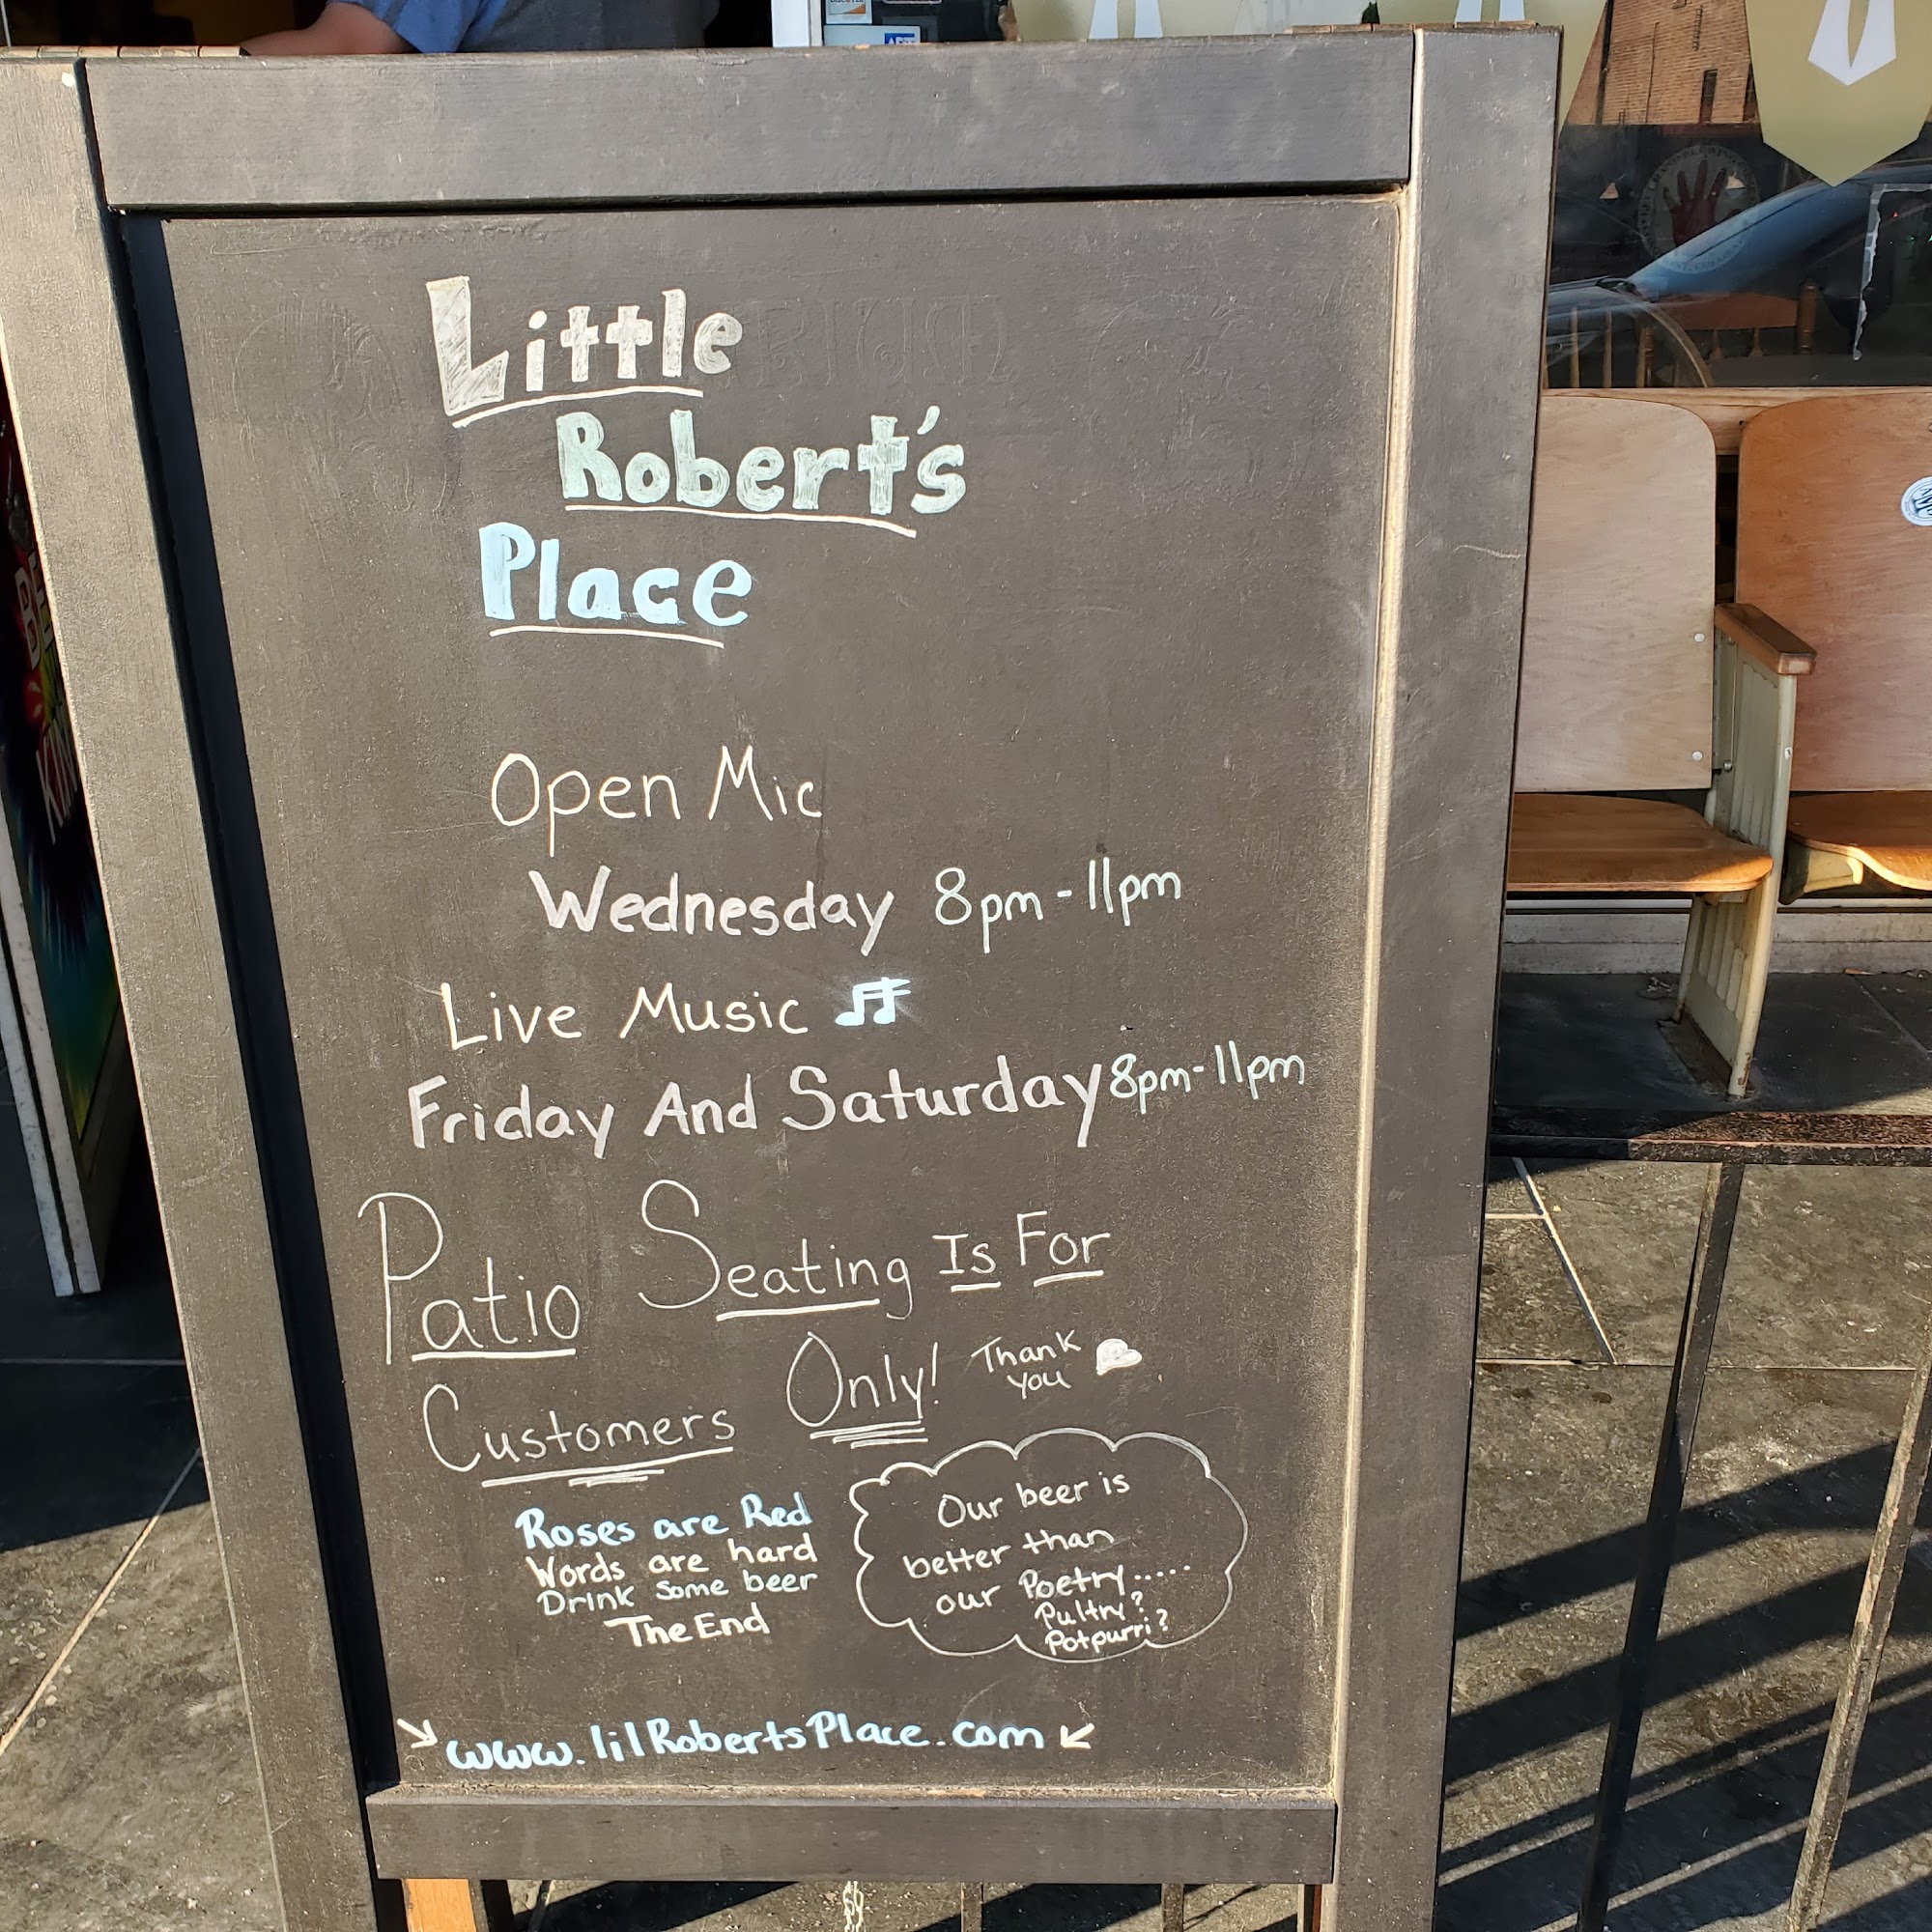 Little
Robert's
Place
Open Mic
Wednesday 8pm-11pm
Live Music
Friday And Saturday 8pm-11pm
Patio Seating Is For
Customers Only! Thank
you
Roses are Red
Words are hard
Drink Some beer
The End
Our beer is
better than
our Poetry.....
Pultry?
Potpurri?
www.lilRobertsPlace.com